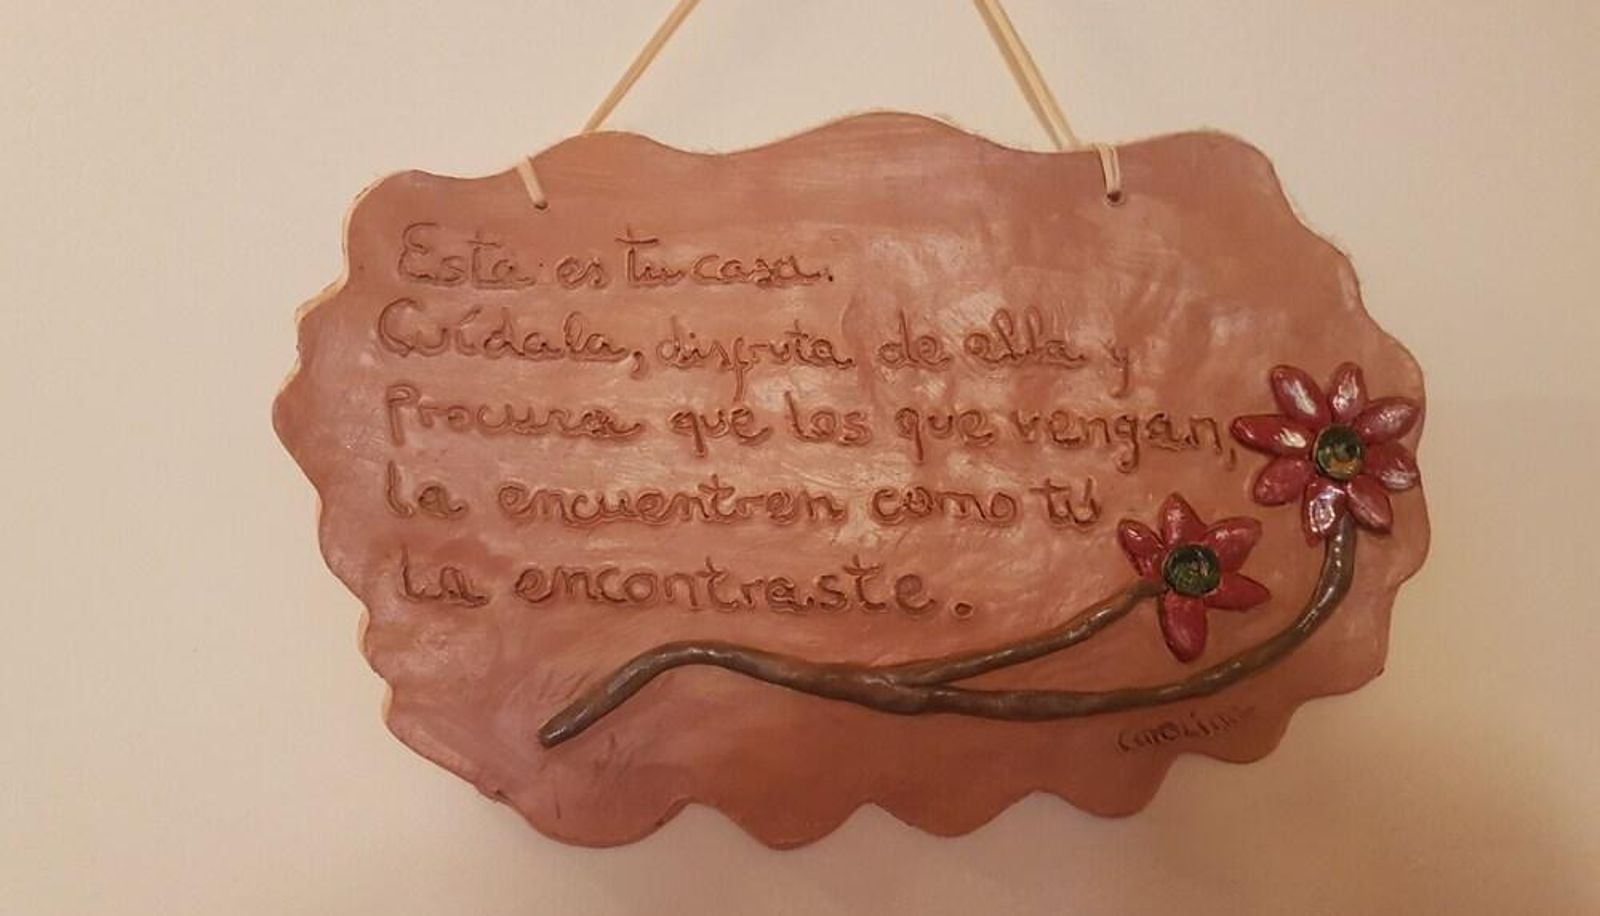 Esta es tu casa.
Cuídala, disfruta de ella y
Procura que los que vengan,
la encuentren como tú
la encontraste.